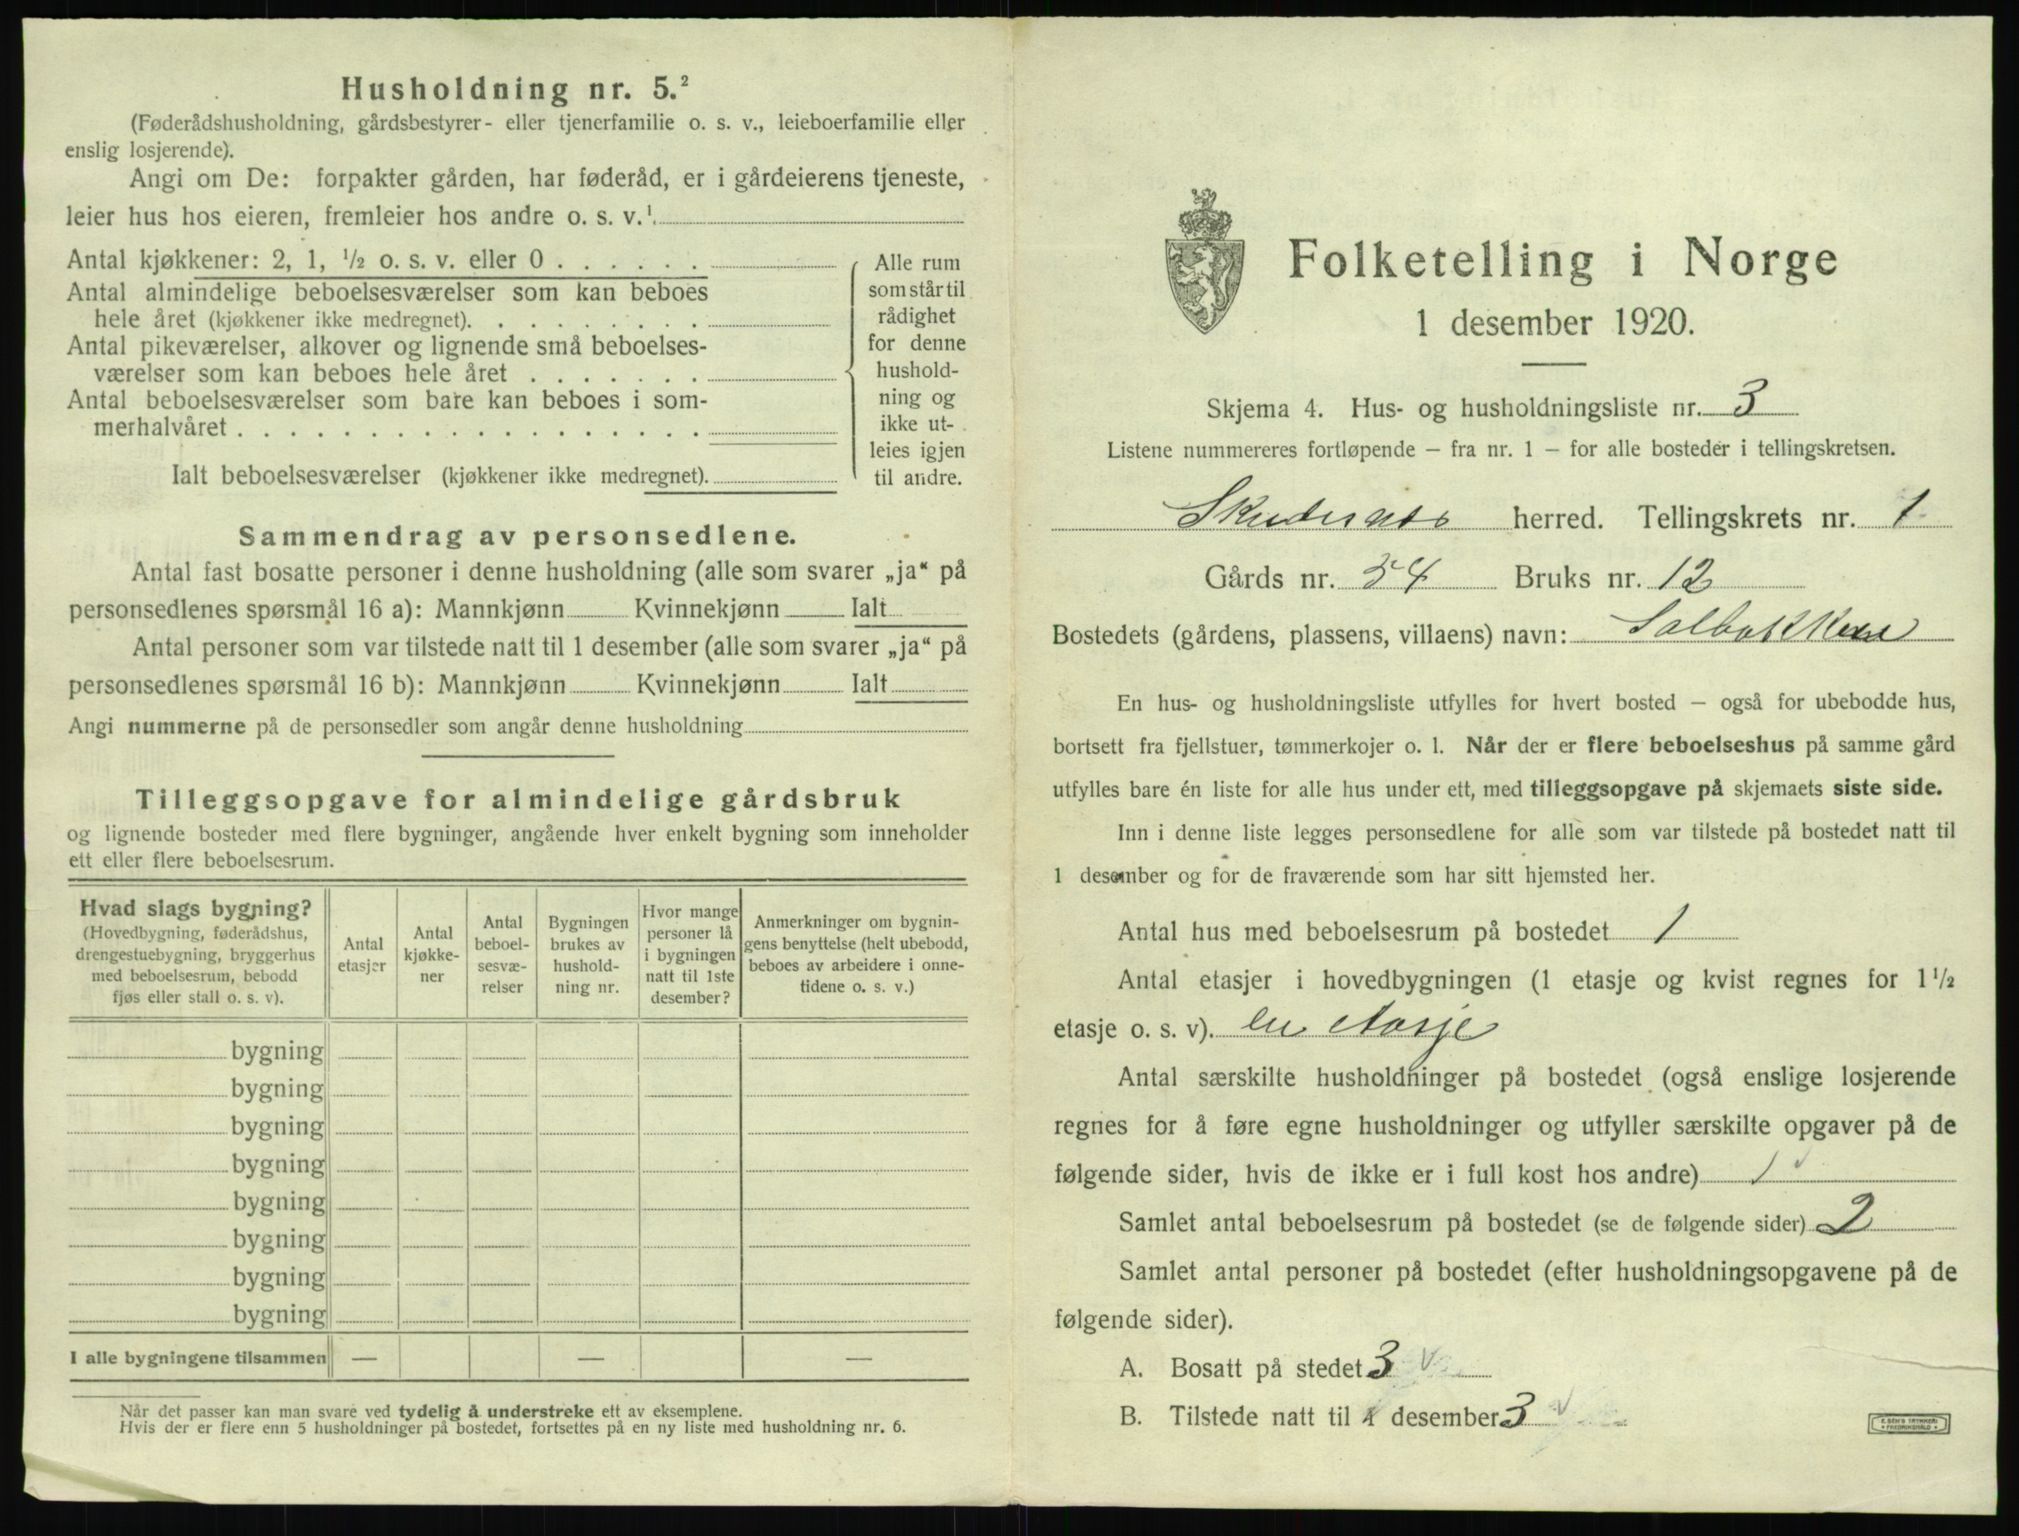 Husholdning nr. 5.²
(Føderådshusholdning, gårdsbestyrer- eller tjenerfamilie o. s. v., leieboerfamilie eller
enslig losjerende).
Angi om De: forpakter gården, har føderåd, er i gårdeierens tjeneste,
leier hus hos eieren, fremleier hos andre o. s. v.¹
Antal kjøkkener: 2, 1, ½ o. s. v. eller 0 . . . . . .
Antal almindelige beboelsesværelser som kan beboes
hele året (kjøkkener ikke medregnet). . . . . . . . .
Antal pikeværelser, alkover og lignende små beboelses-
værelser som kan beboes hele året . . . . . . .
Antal beboelsesværelser som bare kan beboes i som-
merhalvåret . . . . . . . . . . . . . . . . .
Ialt beboelsesværelser (kjøkkener ikke medregnet).
Alle rum
som står til
rådighet
for denne
hushold-
ning og
ikke ut-
leies igjen
til andre.
Sammendrag av personsedlene.
Antal fast bosatte personer i denne husholdning (alle som svarer „ja“ på
personsedlenes spørsmål 16 a): Mannkjønn Kvinnekjønn Ialt
Antal personer som var tilstede natt til 1 desember (alle som svarer „ja“ på
personsedlenes spørsmål 16 b): Mannkjønn Kvinnekjønn Ialt
Angi nummerne på de personsedler som angår denne husholdning
Tilleggsopgave for almindelige gårdsbruk
og lignende bosteder med flere bygninger, angående hver enkelt bygning som inneholder
ett eller flere beboelsesrum.
Hvad slags bygning?
(Hovedbygning, føderådshus,
drengestuebygning, bryggerhus
med beboelsesrum, bebodd
fjøs eller stall o. s. v).
Antal
etasjer
Antal
kjøkke-
ner
Antal
beboel-
sesvæ-
relser
Bygningen
brukes av
hushold-
ning nr.
Hvor mange
personer lå
i bygningen
natt til 1ste
desember?
Anmerkninger om bygnin-
gens benyttelse (helt ubebodd,
beboes av arbeidere i onne-
tidene o. s. v.)
bygning
bygning
bygning
bygning
bygning
bygning
bygning
bygning
I alle bygningene tilsammen — — —
Når det passer kan man svare ved tydelig å understreke ett av eksemplene.
Hvis der er flere enn 5 husholdninger på bostedet, fortsettes på en ny liste med husholdning nr. 6.
Folketelling i Norge
1 desember 1920.
Skjema 4. Hus- og husholdningsliste nr. 3
Listene nummereres fortløpende – fra nr. 1 – for alle bosteder i tellingskretsen.
Skudesnes herred. Tellingskrets nr. 1
Gårds nr. 34 Bruks nr. 12
Bostedets (gårdens, plassens, villaens) navn: Solbakken
En hus- og husholdningsliste utfylles for hvert bosted – også for ubebodde hus,
bortsett fra fjellstuer, tømmerkojer o. l. Når der er flere beboelseshus på samme gård
utfylles bare én liste for alle hus under ett, med tilleggsopgave på skjemaets siste side.
Inn i denne liste legges personsedlene for alle som var tilstede på bostedet natt til
1 desember og for de fraværende som har sitt hjemsted her.
Antal hus med beboelsesrum på bostedet 1
Antal etasjer i hovedbygningen (1 etasje og kvist regnes for 1½
etasje o. s. v). en etasje
Antal særskilte husholdninger på bostedet (også enslige losjerende
regnes for å føre egne husholdninger og utfyller særskilte opgaver på de
følgende sider, hvis de ikke er i full kost hos andre) 1
Samlet antal beboelsesrum på bostedet (se de følgende sider) 2
Samlet antal personer på bostedet (efter husholdningsopgavene på de
følgende sider).
A. Bosatt på stedet 3 v
B. Tilstede natt til 1 desember 3 v